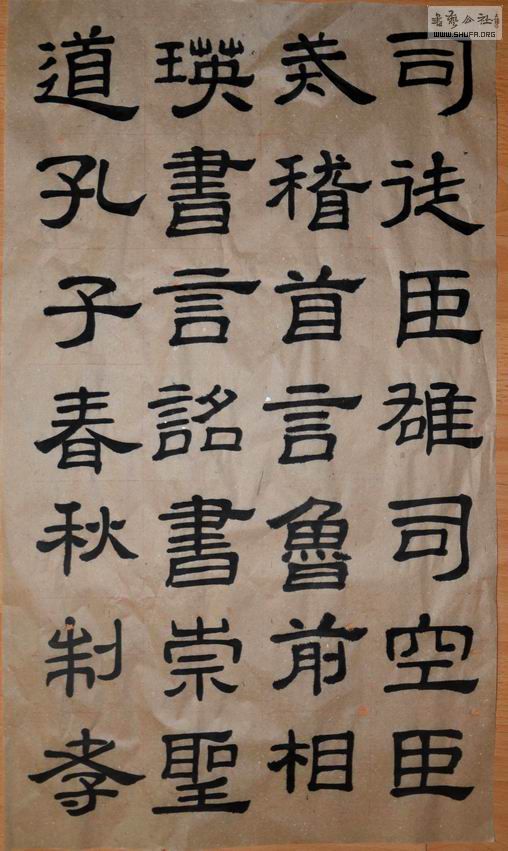 司徒臣雄司空臣
戒稽首言魯前相
瑛書言詔書崇聖
道孔子春秋制孝
書藝公社
WWW.SHUFA.ORG